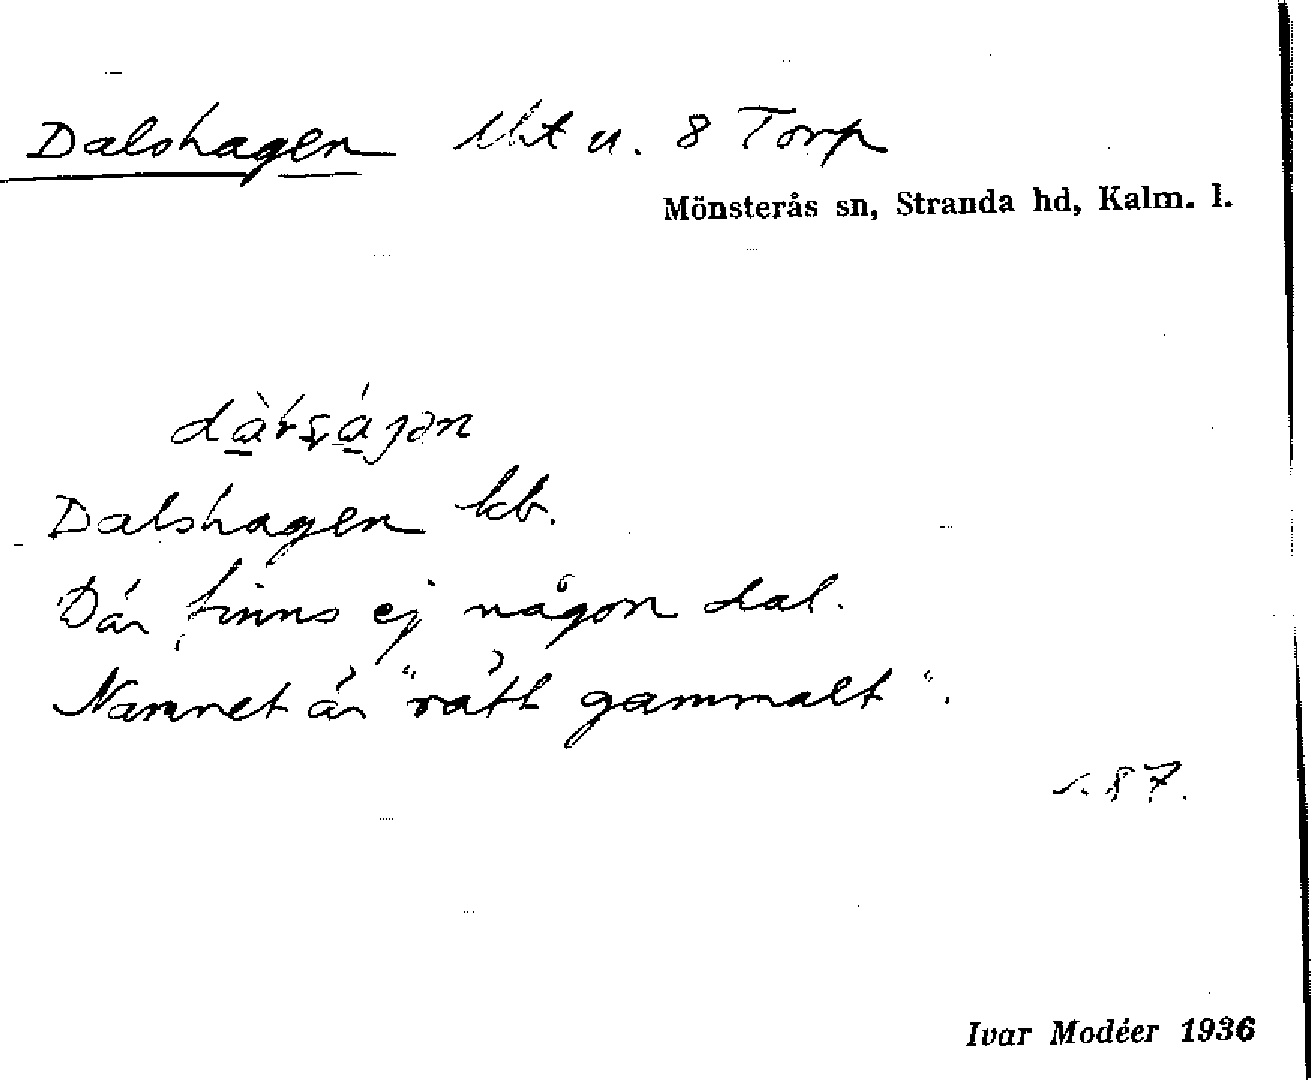 Dalshagen lht u. 8 Torp
Mönsterås sn, Stranda hd, Kalm. l.
Dalshagen kb.
Där finns ej någon dal.
Namnet är "rätt gammalt".
s. 87.
Ivar Modéer 1936